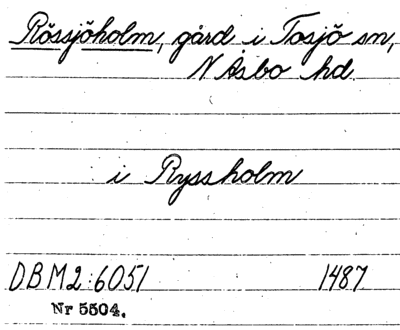 Rössjöholm, gård i Tosjö sn,
N Åsbo hd.
i Ryssholm
DBM2:6051 1487
Nr 5504.